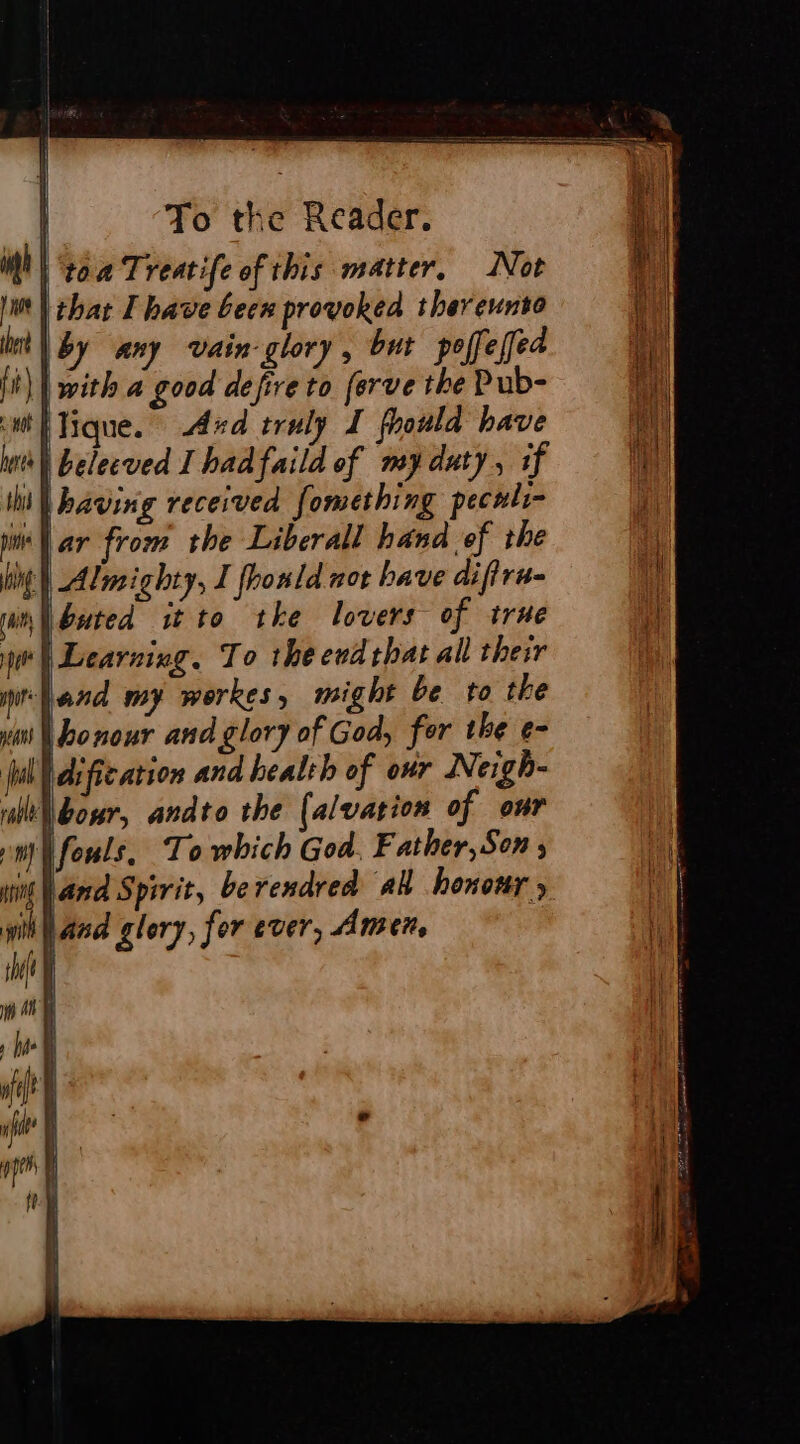 To the Reader.
to a Treatiſe of this matter. Not
that I have been provoked thereunto
by any vain-glory, but poſſeſſed
with a good deſire to ſerve the Pub-
lique. And truly I ſhould have
beleeved I had faild of my duty, if
having received ſomething peculi-
ar from the Liberall hand of the
Almighty, I ſhould not have diſtru-
buted it to the lovers of true
Learning. To the end that all their
and my workes, might be to the
honour and glory of God, for the e-
dification and health of our Neigh-
bour, and to the ſalvation of our
ſouls. To which God. Father, Son,
and Spirit, be rendred all honour,
and glory, for ever, Amen.